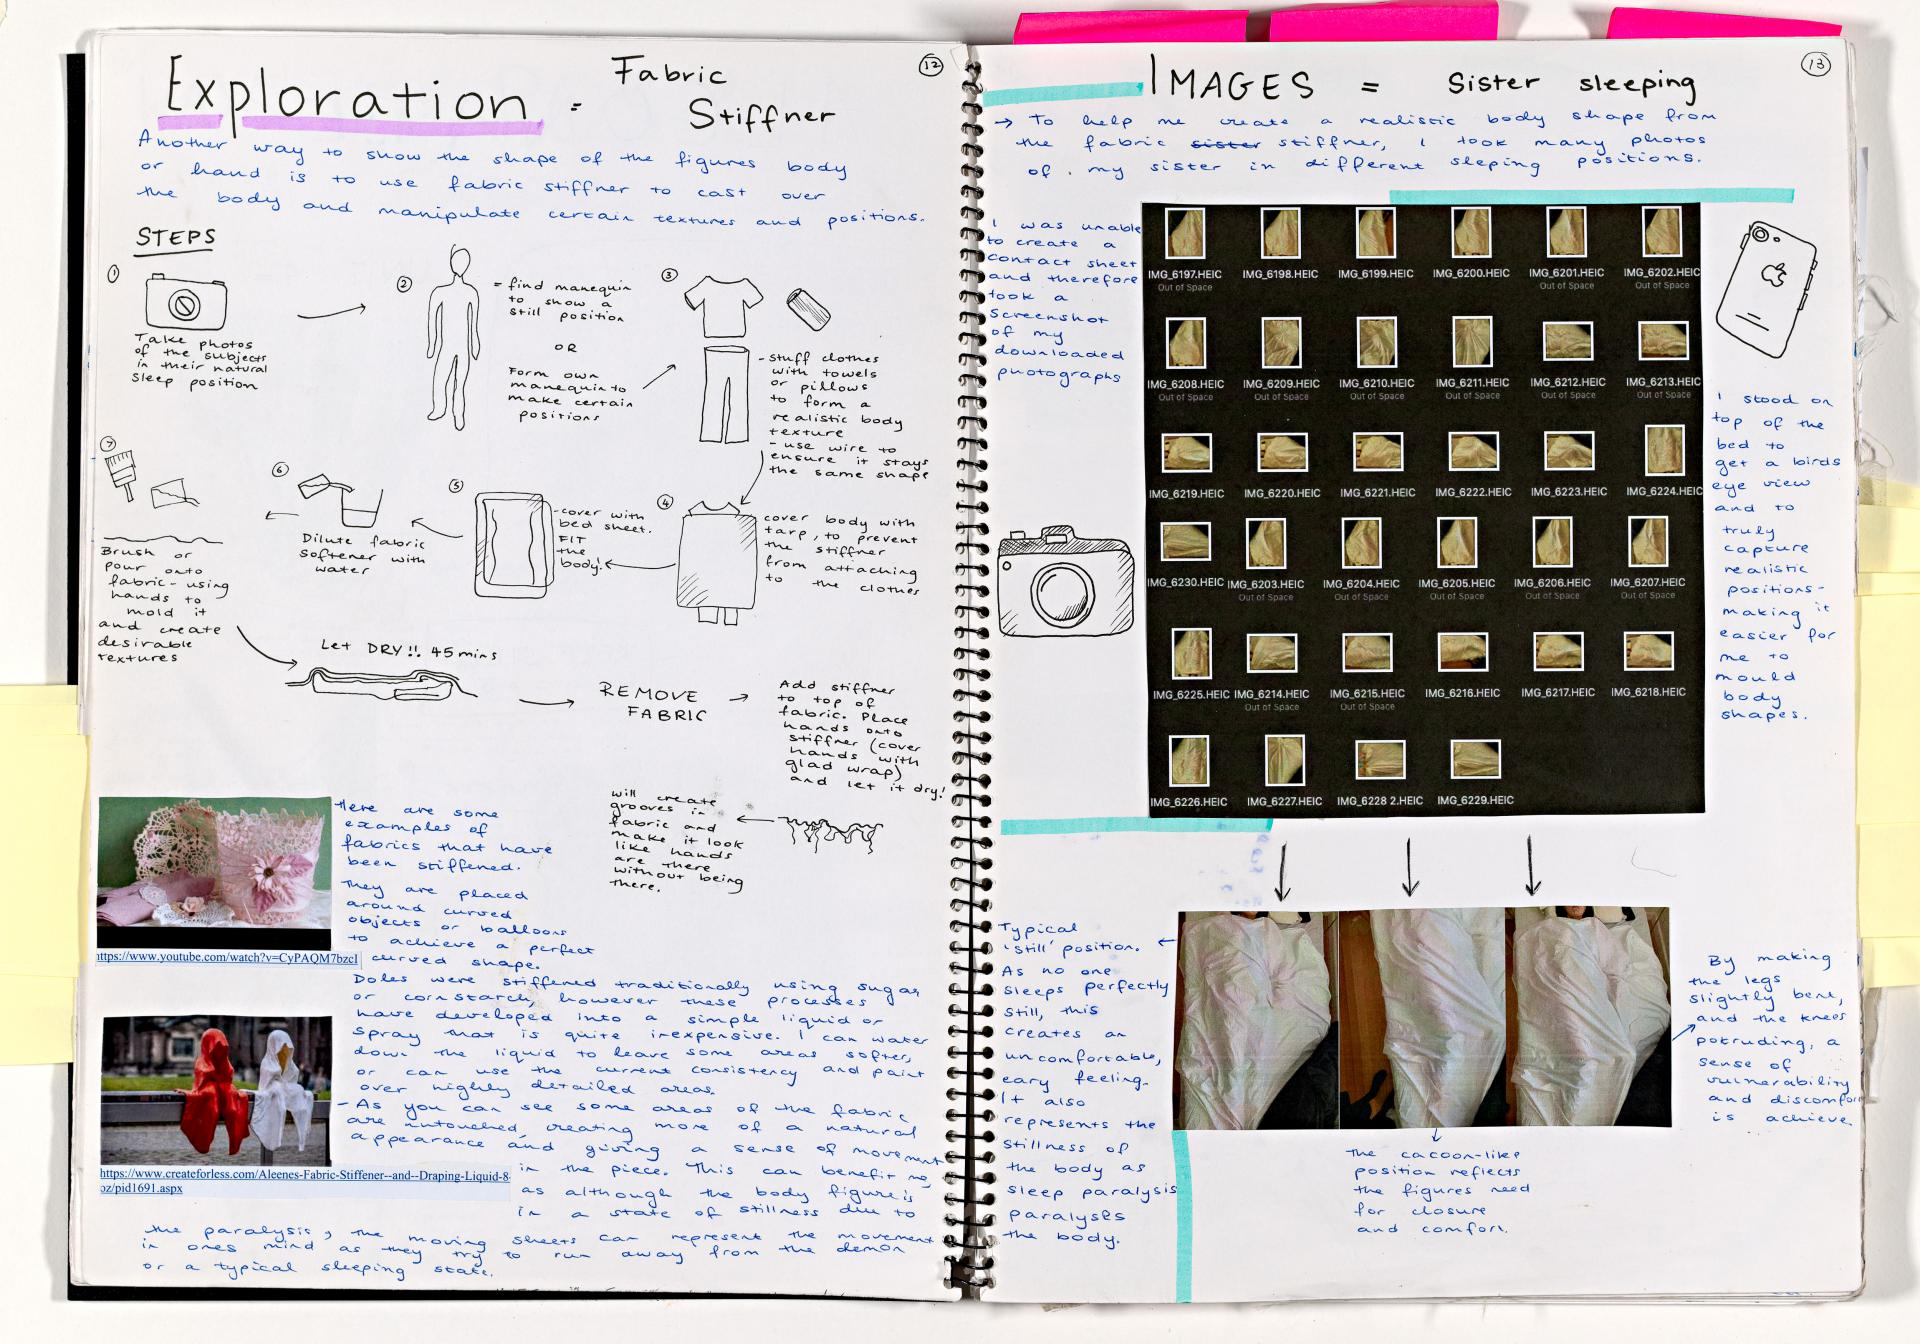 Exploration = Fabric
Stiffner
12
Another way to show the shape of the figures body
or hand is to use fabric stiffner to cast over
the body and manipulate certain textures and positions.
STEPS
1
Take photos
of the subjects
in their natural
sleep position
2
= find manequin
to show a
still position
OR
Form own
manequin to
make certain
positions
3
- stuff clothes
with towels
or pillows
to form a
realistic body
texture
- use wire to
ensure it stays
the same shape
4
cover body with
tarp, to prevent
the stiffner
from attaching
to the clothes
5
- cover with
bed sheet.
FIT
the
body.
6
Dilute fabric
softener with
water
7
Brush or
pour onto
fabric - using
hands to
mold it
and create
desirable
textures
Let DRY!! 45 mins
REMOVE
FABRIC
Add stiffner
to top of
fabric. Place
hands onto
stiffner (cover
hands with
glad wrap)
and let it dry!
will create
grooves in
fabric and
make it look
like hands
are there
without being
there.
Here are some
examples of
fabrics that have
been stiffened.
They are placed
around curved
objects or balloons
to achieve a perfect
curved shape.
https://www.youtube.com/watch?v=CyPAQM7bzcI
Doles were stiffened traditionally using sugar
or cornstarch, however these processes
have developed into a simple liquid or
spray that is quite inexpensive. I can water
down the liquid to leave some areas softer,
or can use the current consistency and paint
over highly detailed areas.
- As you can see some areas of the fabric
are untouched, creating more of a natural
appearance and giving a sense of movement
in the piece. This can benefit me,
as although the body figure is
in a state of stillness due to
the paralysis, the moving sheets can represent the movement
in ones mind as they try to run away from the demon
or a typical sleeping state.
https://www.createforless.com/Aleenes-Fabric-Stiffener--and--Draping-Liquid-8-
oz/pid1691.aspx
IMAGES = Sister sleeping
13
→ To help me create a realistic body shape from
the fabric sister stiffner, I took many photos
of my sister in different sleping positions.
I was unable
to create a
contact sheet
and therefore
took a
screenshot
of my
downloaded
photographs
IMG_6197.HEIC IMG_6198.HEIC IMG_6199.HEIC IMG_6200.HEIC IMG_6201.HEIC IMG_6202.HEIC
Out of Space Out of Space Out of Space
IMG_6208.HEIC IMG_6209.HEIC IMG_6210.HEIC IMG_6211.HEIC IMG_6212.HEIC IMG_6213.HEIC
Out of Space Out of Space Out of Space Out of Space Out of Space Out of Space
IMG_6219.HEIC IMG_6220.HEIC IMG_6221.HEIC IMG_6222.HEIC IMG_6223.HEIC IMG_6224.HEIC
IMG_6230.HEIC IMG_6203.HEIC IMG_6204.HEIC IMG_6205.HEIC IMG_6206.HEIC IMG_6207.HEIC
Out of Space Out of Space Out of Space Out of Space Out of Space
IMG_6225.HEIC IMG_6214.HEIC IMG_6215.HEIC IMG_6216.HEIC IMG_6217.HEIC IMG_6218.HEIC
Out of Space Out of Space
IMG_6226.HEIC IMG_6227.HEIC IMG_6228 2.HEIC IMG_6229.HEIC
I stood on
top of the
bed to
get a birds
eye view
and to
truly
capture
realistic
positions-
making it
easier for
me to
mould
body
shapes.
Typical
'still' position.
As no one
sleeps perfectly
still, this
creates an
uncomfortable,
eary feeling.
It also
represents the
stillness of
the body as
sleep paralysis
paralyses
the body.
The cacoon-like
position reflects
the figures need
for closure
and comfort.
By making
the legs
slightly bent,
and the knees
potruding, a
sense of
vulnerability
and discomfort
is achieve